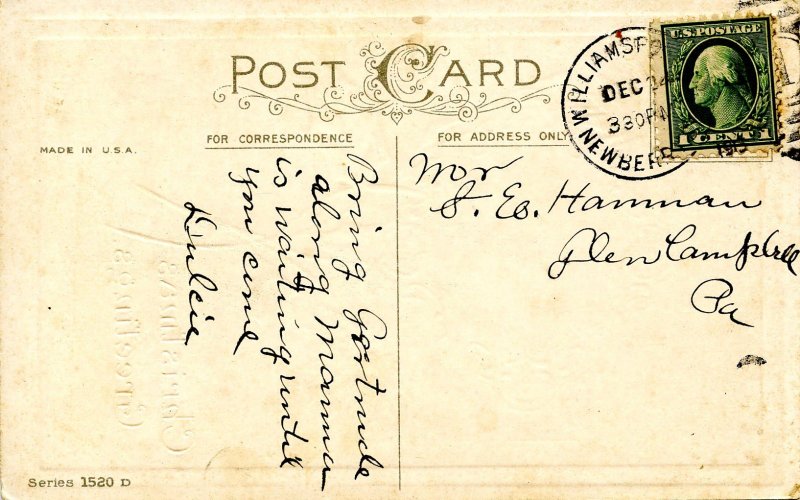 POST CARD
FOR CORRESPONDENCE
FOR ADDRESS ONLY
MADE IN U.S.A.
WILLIAMSP
DEC 24
330PM
191
NEWBERR
U.S.POSTAGE
1 CENT 1
Bring Gertrude
along Mamma
is waiting until
you come
Dulcie
Mr
S. Es. Hamman
Glen Campbell
Pa
Christmas
Greetings
Series 1520 D